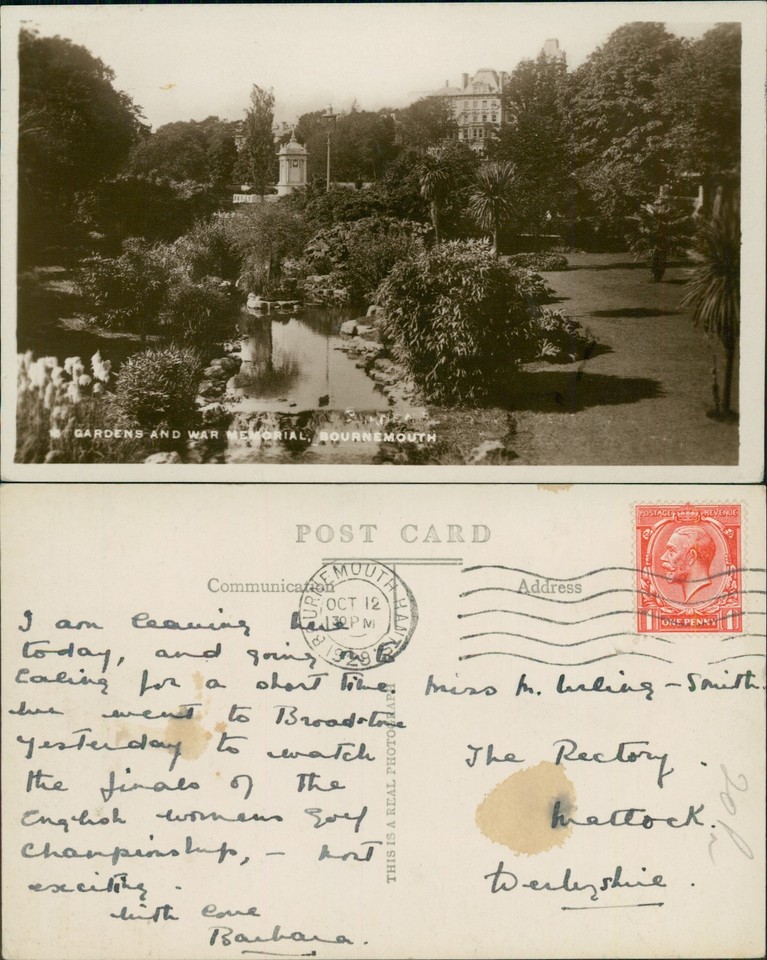 GARDENS AND WAR MEMORIAL, BOURNEMOUTH
POST CARD
Communication
Address
BOURNEMOUTH HANTS
OCT 12
1929
POSTAGE REVENUE
1 ONE PENNY 1
THIS IS A REAL PHOTOGRAPH
I am leaving here
today, and going on to
Ealing for a short time.
We went to Broadstone
yesterday to watch
the finals of the
English womens Golf
Championship, – most
exciting.
With love
Barbara.
Miss M. Urling-Smith.
The Rectory.
Matlock.
Derbyshire.